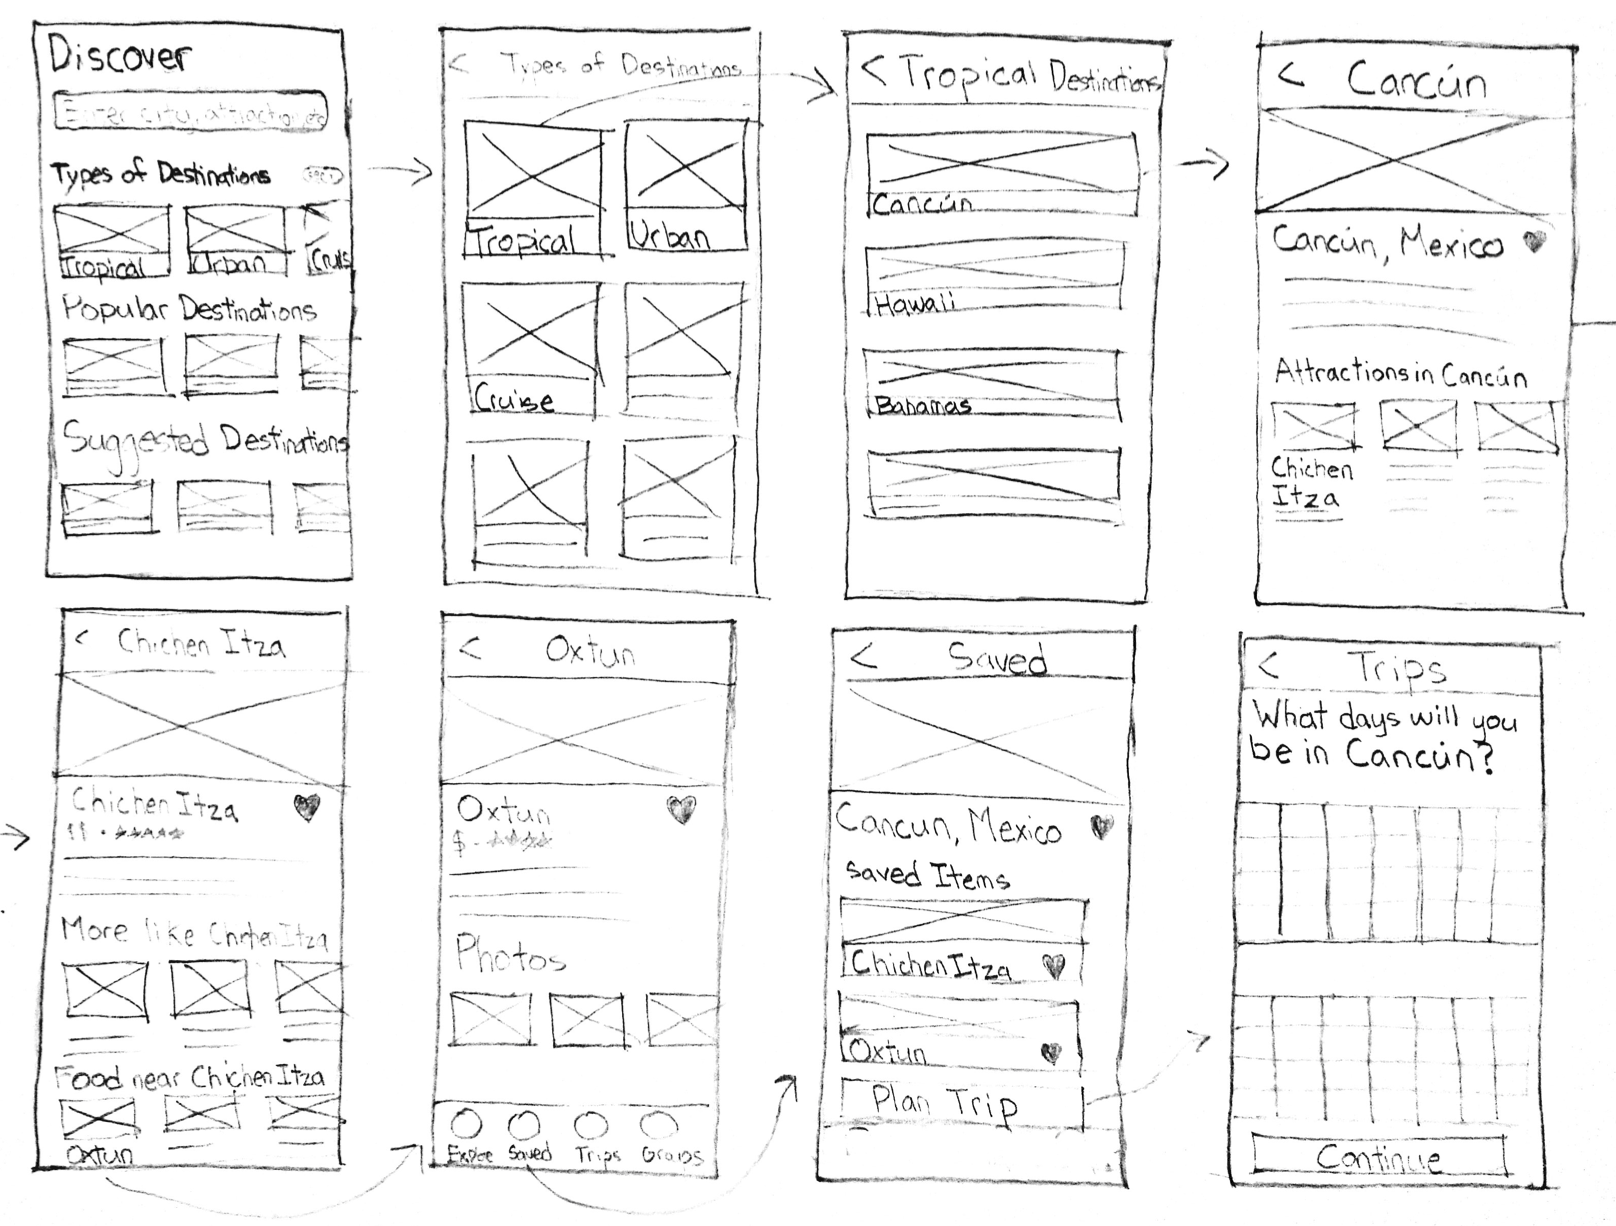 Discover
Enter city, attraction, etc
Types of Destinations
Tropical
Urban
Cruis
Popular Destinations
Suggested Destinations
< Types of Destinations
Tropical
Urban
Cruise
< Tropical Destinations
Cancún
Hawaii
Bahamas
< Cancún
Cancún, Mexico
Attractions in Cancún
Chichen
Itza
< Chichen Itza
Chichen Itza
More like Chichen Itza
Food near Chichen Itza
Oxtun
< Oxtun
Oxtun
$
Photos
Saved
Trips
Groups
< Saved
Cancun, Mexico
Saved Items
Chichen Itza
Oxtun
Plan Trip
< Trips
What days will you
be in Cancún?
Continue